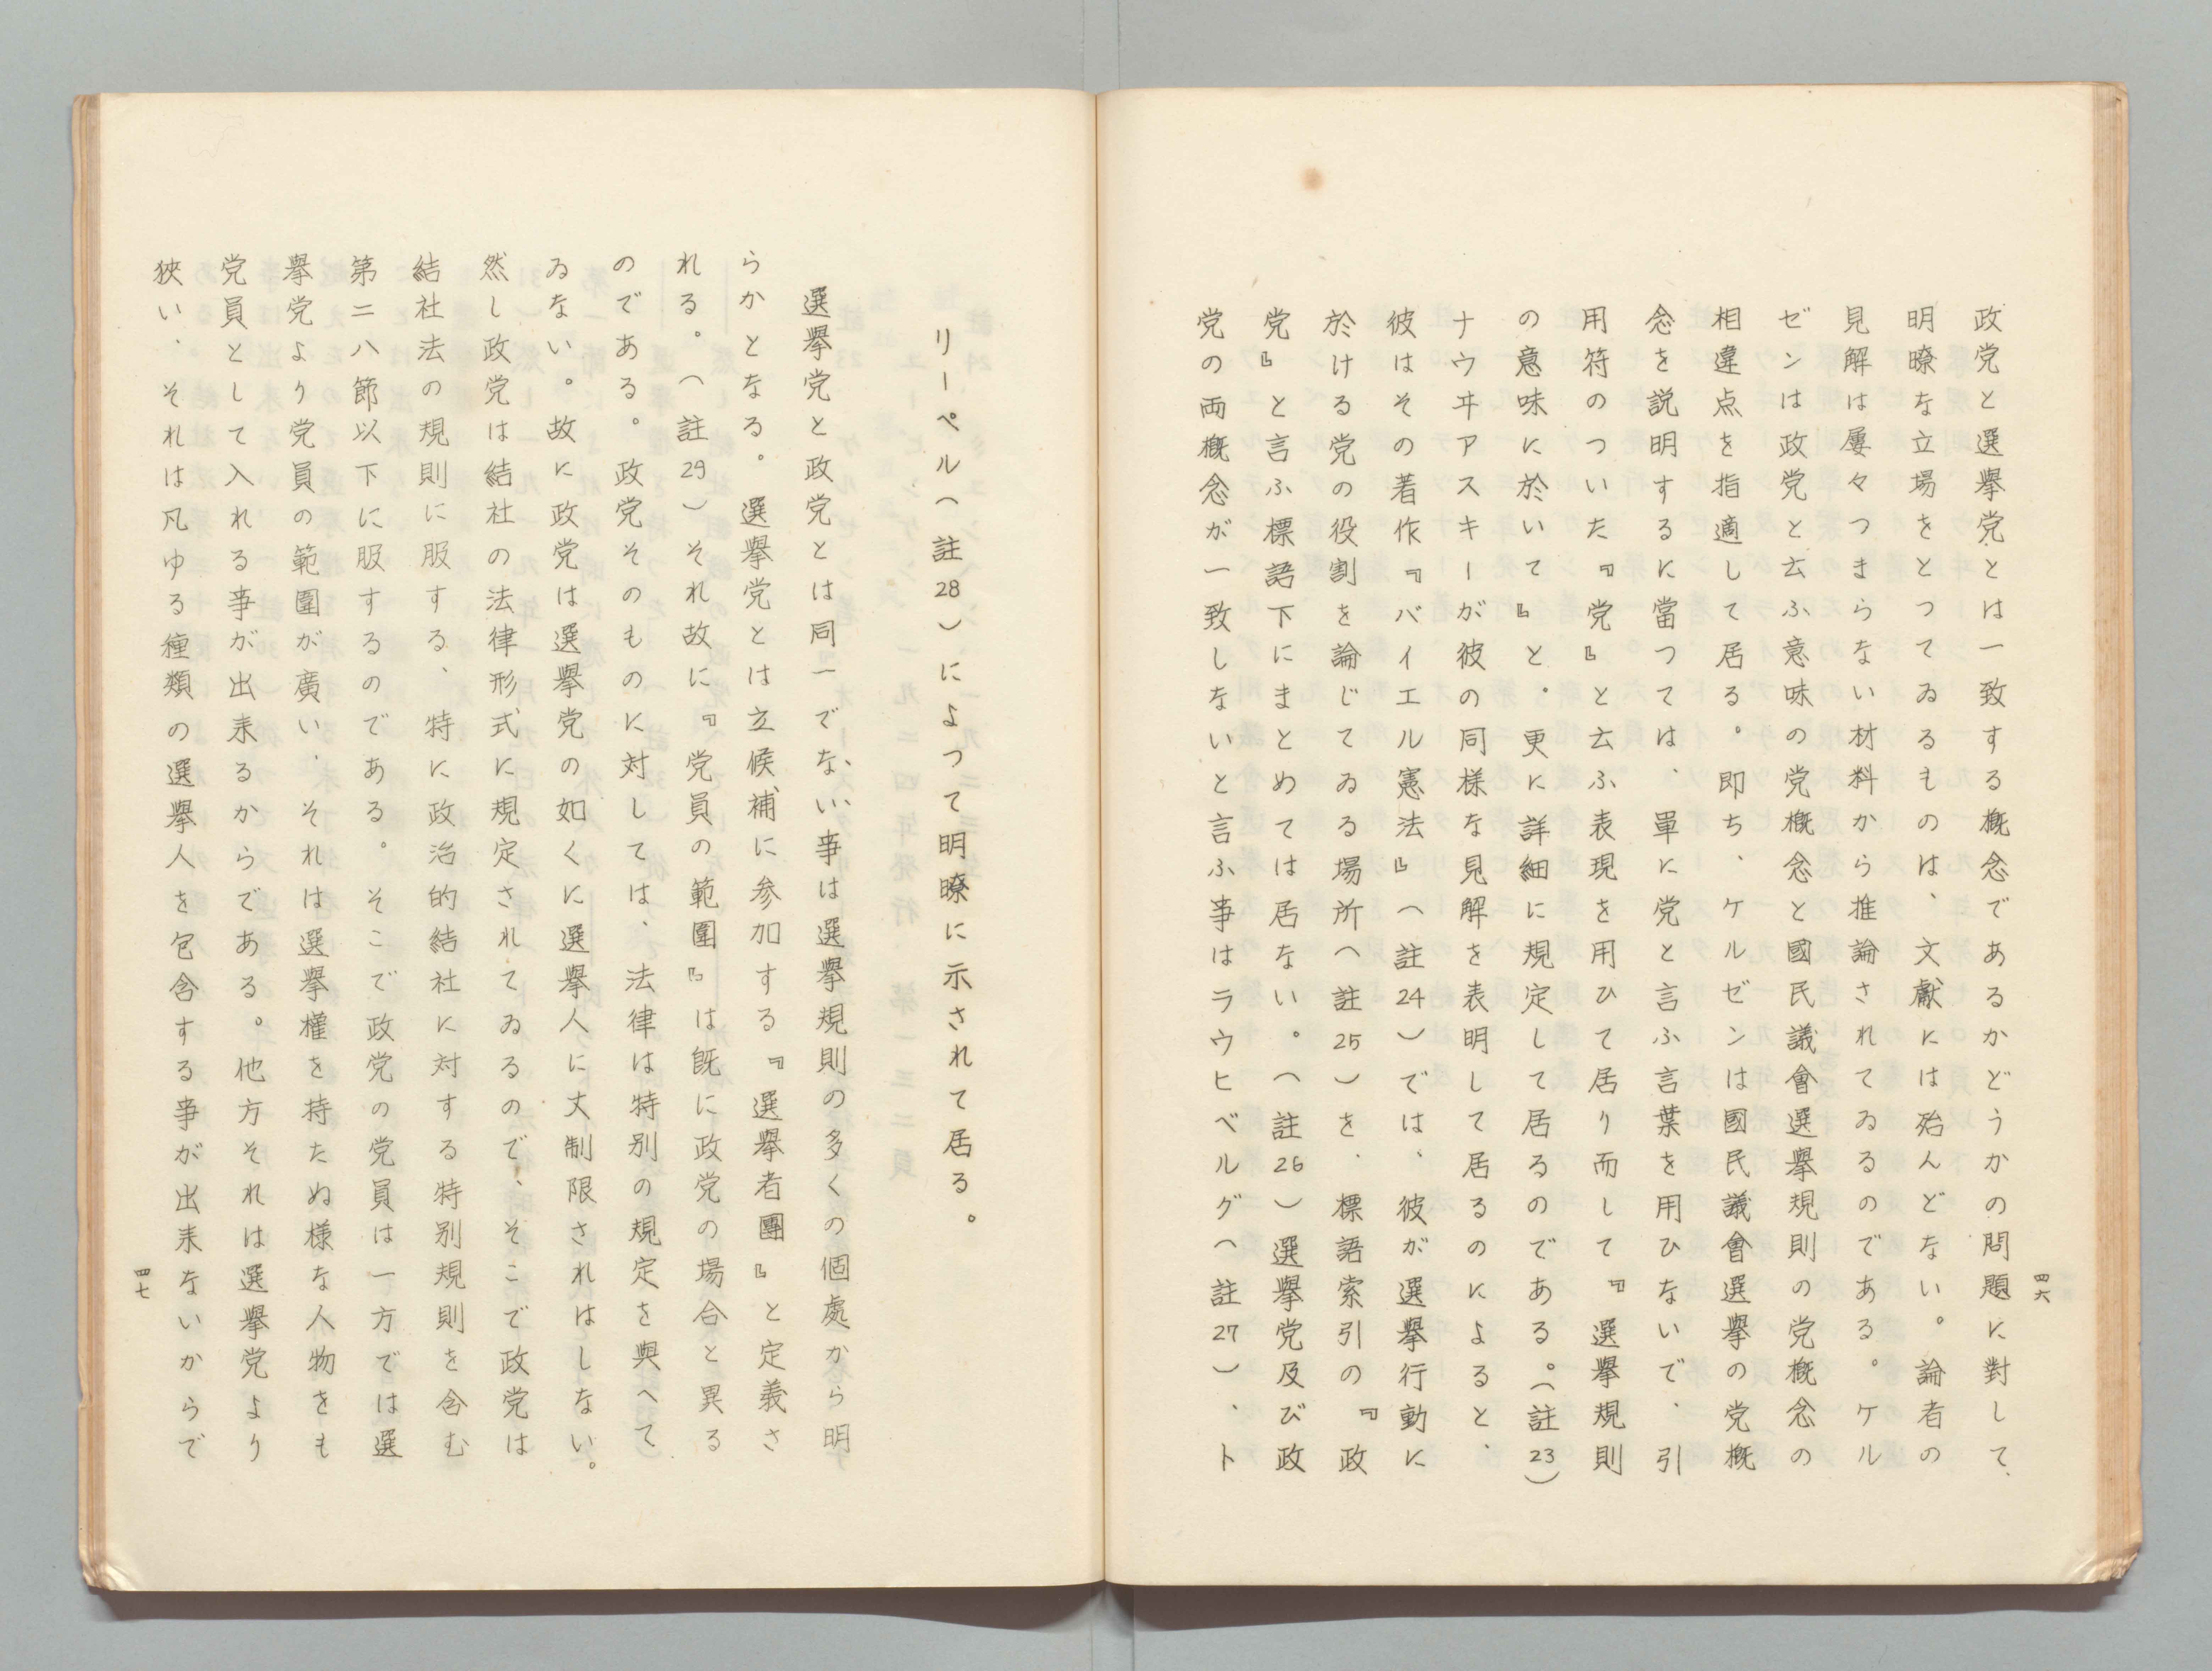 政党と選擧党とは一致する概念であるかどうかの問題に對して、
明瞭な立場をとつてゐるものは、文獻には殆んどない。論者の
見解は屢々つまらない材料から推論されてゐるのである。ケル
ゼンは政党と云ふ意味の党概念と國民議會選擧規則の党概念の
相違点を指適して居る。即ち、ケルゼンは國民議會選擧の党概
念を説明するに當つては、單に党と言ふ言葉を用ひないで、引
用符のついた『党』と云ふ表現を用ひて居り而して『選擧規則
の意味に於いて』と。更に詳細に規定して居るのである。（註23）
ナウヰアスキーが彼の同様な見解を表明して居るのによると、
彼はその著作『バイエル憲法』（註24）では、彼が選擧行動に
於ける党の役割を論じてゐる場所（註25）を、標語索引の『政
党』と言ふ標語下にまとめては居ない。（註26）選擧党及び政
党の両概念が一致しないと言ふ事はラウヒベルグ（註27）、ト
四六
リーペル（註28）によつて明瞭に示されて居る。
選擧党と政党とは同一でない事は選擧規則の多くの個處から明
らかとなる。選擧党とは立候補に参加する『選擧者團』と定義さ
れる。（註29）それ故に『党員の範圍』は既に政党の場合と異る
のである。政党そのものに対しては、法律は特別の規定を與へて
ゐない。故に政党は選擧党の如くに選擧人に丈制限されはしない。
然し政党は結社の法律形式に規定されてゐるので、そこで政党は
結社法の規則に服する、特に政治的結社に対する特別規則を含む
第二八節以下に服するのである。そこで政党の党員は一方では選
擧党より党員の範圍が廣い、それは選擧權を持たぬ様な人物をも
党員として入れる事が出来るからである。他方それは選擧党より
狹い、それは凡ゆる種類の選擧人を包含する事が出来ないからで
四七